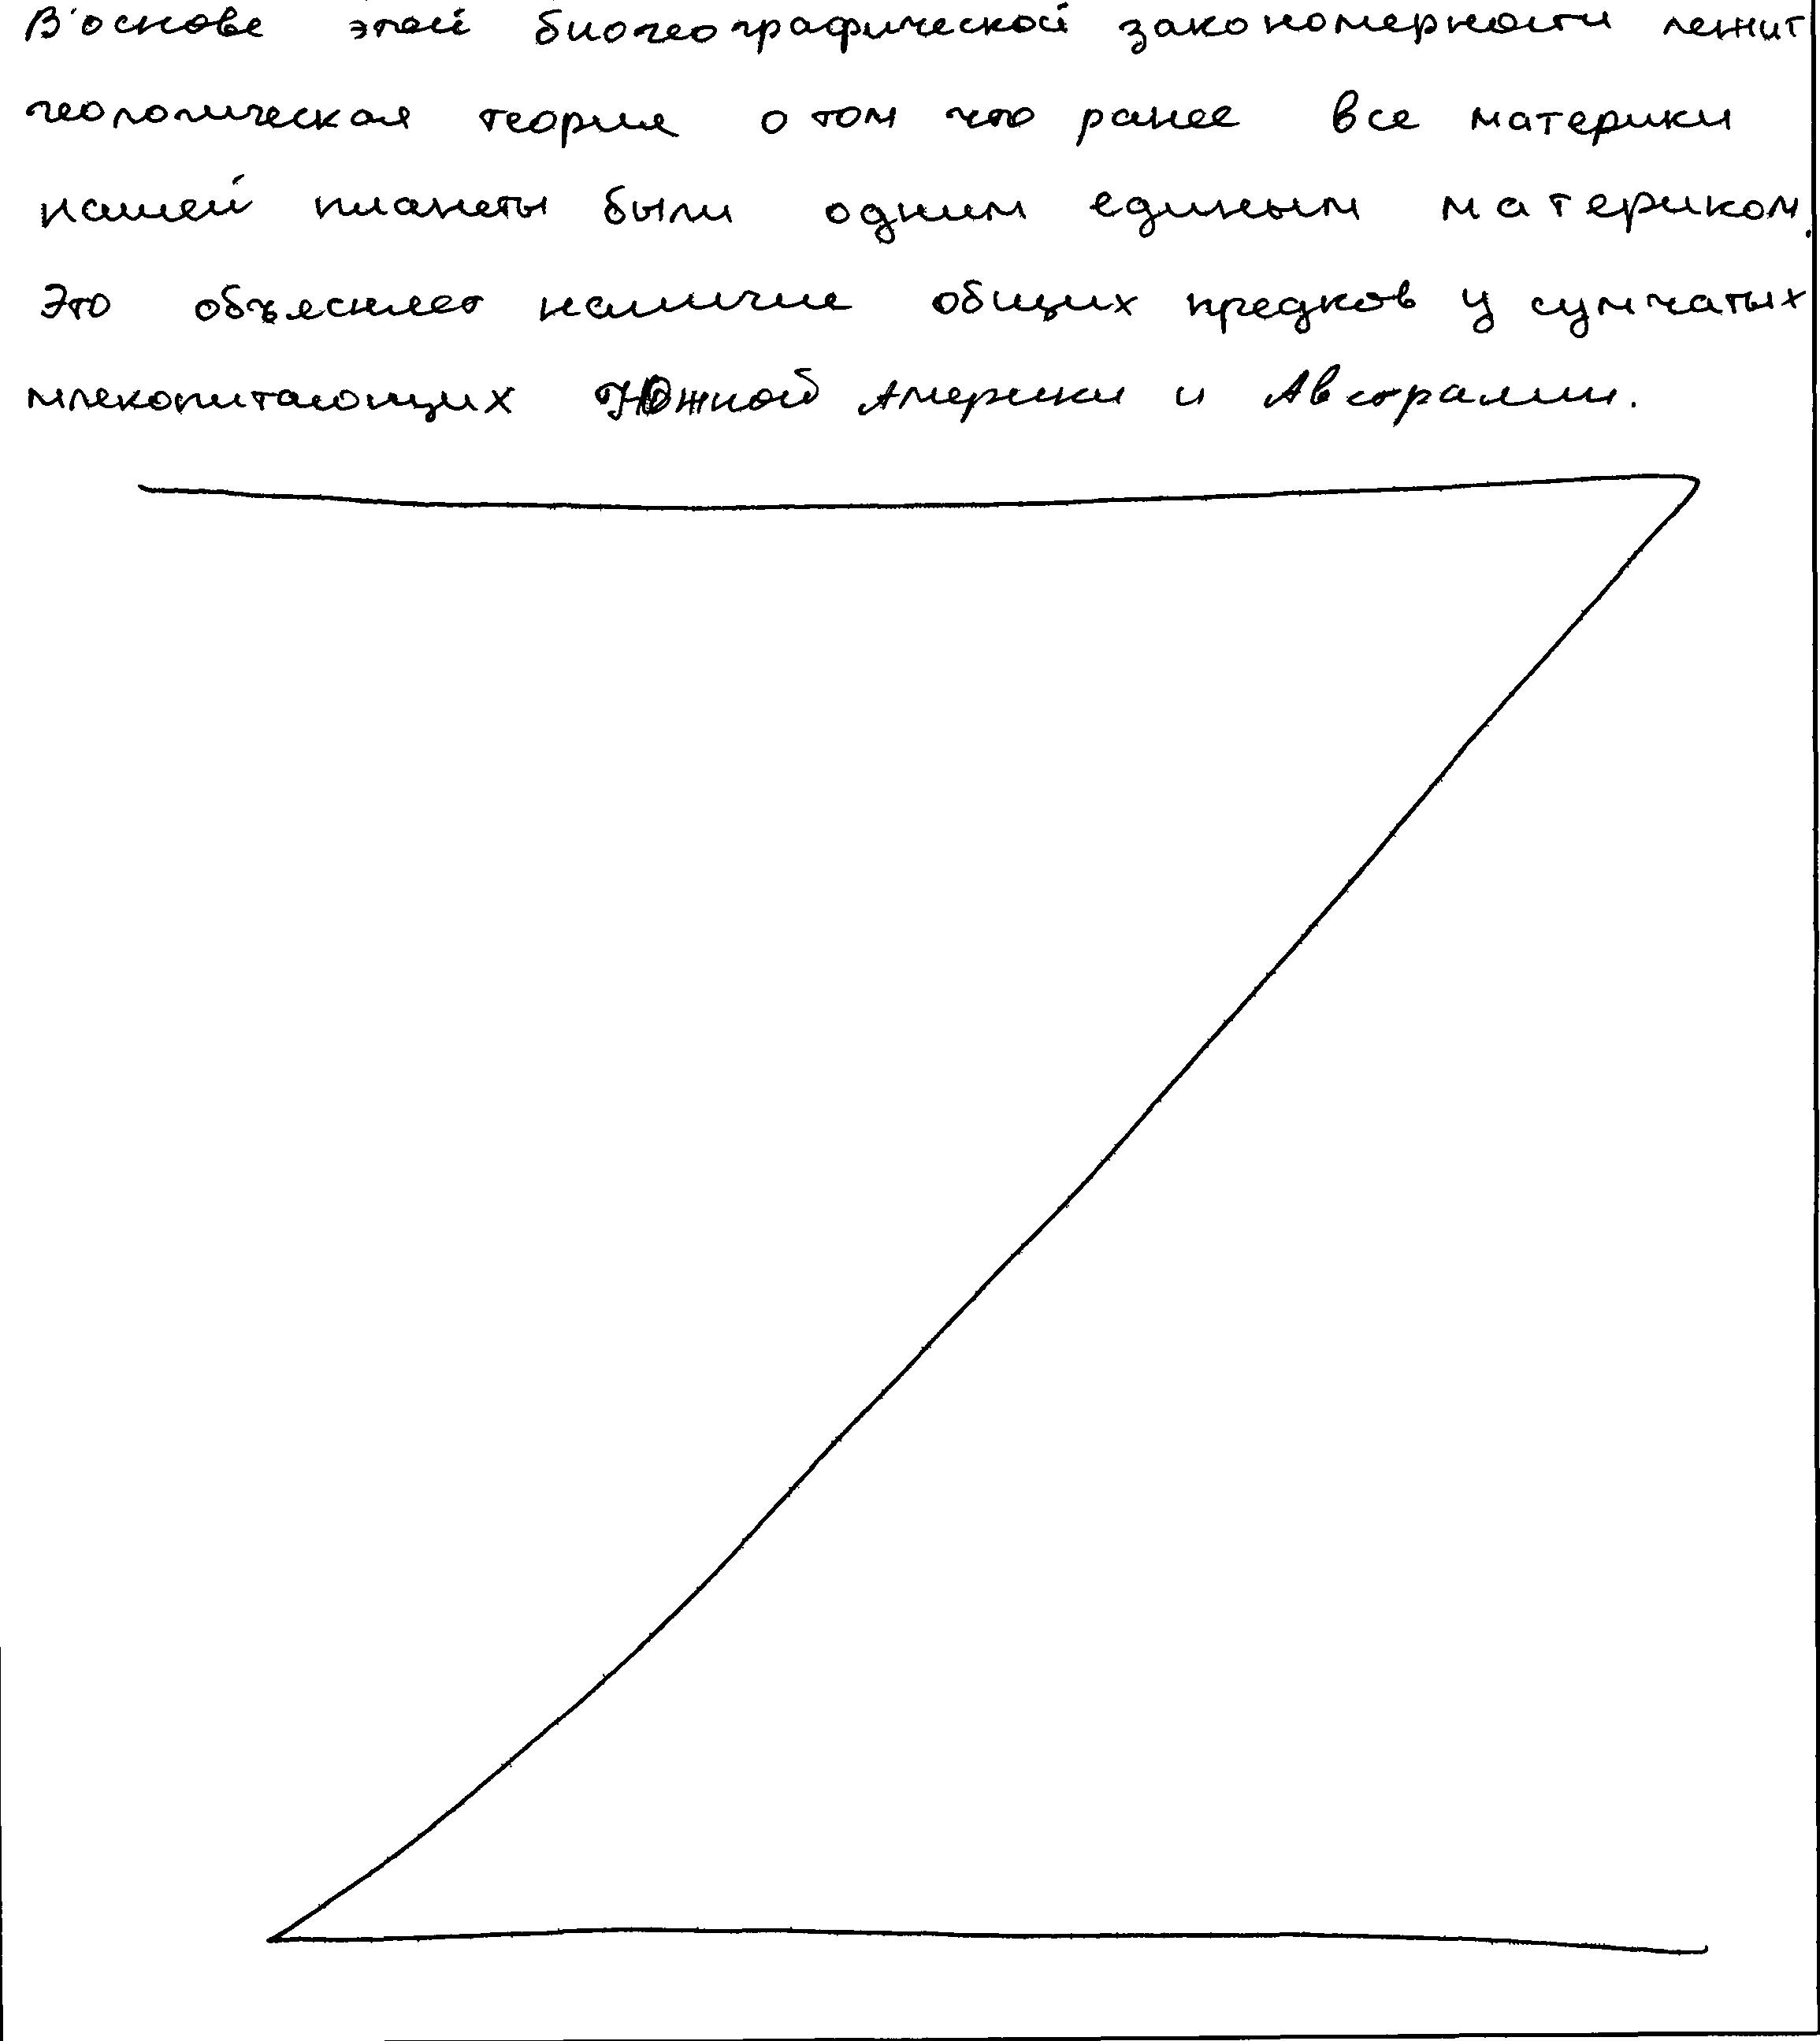 В основе этой биогеографической закономерности лежит
геологическая теория о том что ранее все материки
нашей планеты были одним единым материком.
Это объясняет наличие общих предков у сумчатых
млекопитающих Южной Америки и Австралии.